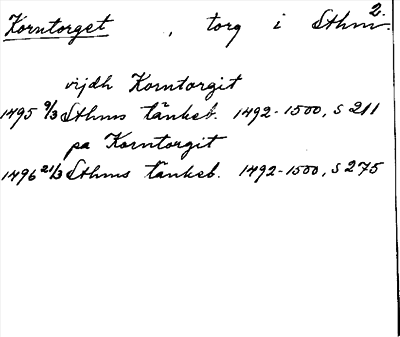 2.
Korntorget , torg i Sthm.
vijdh Korntorgit
1495 9/3 Sthms tänkeb. 1492-1500, s 211
pa Korntorgit
1496 21/3 Sthms tänkeb. 1492-1500, s 275